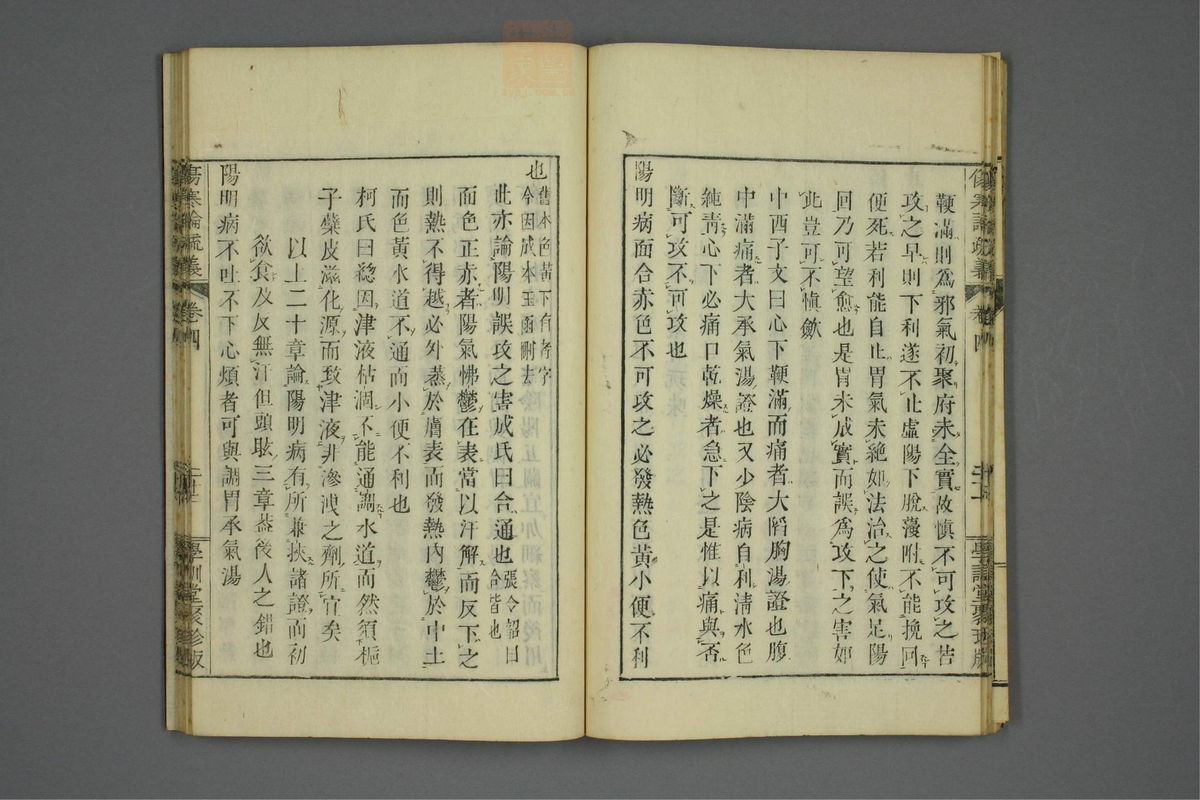 鞕滿則爲邪氣初聚府未全實故慎不可攻之若
攻之早則下利遂不止虛陽下脫藩咐不能挽回
便死若利能自止胃氣未絶如法治之使氣足陽
回乃可望愈也是胃未成實而誤爲攻下之害如
此豈可不慎歟
中西子文曰心下鞕滿而痛者大陷胸湯證也腹
中滿痛者大承氣湯證也又少陰病自利清水色
純青心下必痛口乾燥者急下之是惟以痛與否
斷可攻不可攻也
陽明病面合赤色不可攻之必發熱色黃小便不利
也 舊本色黃下有者字
今因成本玉函刪去
此亦論陽明誤攻之害成氏曰合通也 張令韶曰
合皆也
面色正赤者陽氣怫鬱在表當以汗解而反下之
則熱不得越必外蒸於膚表而發熱內鬱於中土
而色黃水道不通而小便不利也
柯氏曰總因津液枯涸不能通調水道而然須梔
子蘗皮滋化源而致津液非滲洩之劑所宜矣
以上二十章論陽明病有所兼挾諸證而初
欲食及反無汗但頭眩三章蓋後人之錯也
陽明病不吐不下心煩者可與調胃承氣湯
傷寒論疏義
卷四
學訓堂聚珍版
傷寒論疏義
卷四
學訓堂聚珍版